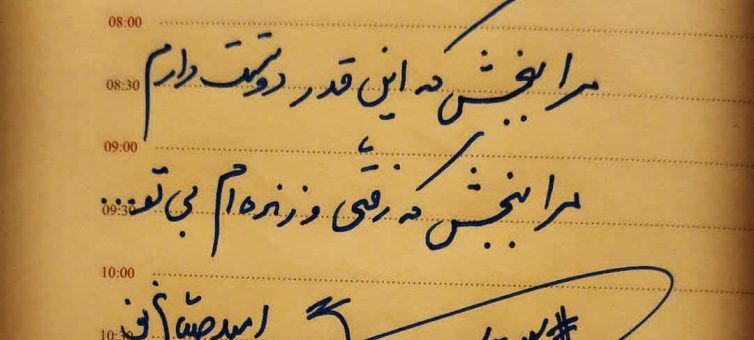 08:00
مرا ببخش که این قدر دوستت دارم
08:30
09:00
مرا ببخش که رفتی و زنده ام بی تو...
09:30
10:00
10:30
#